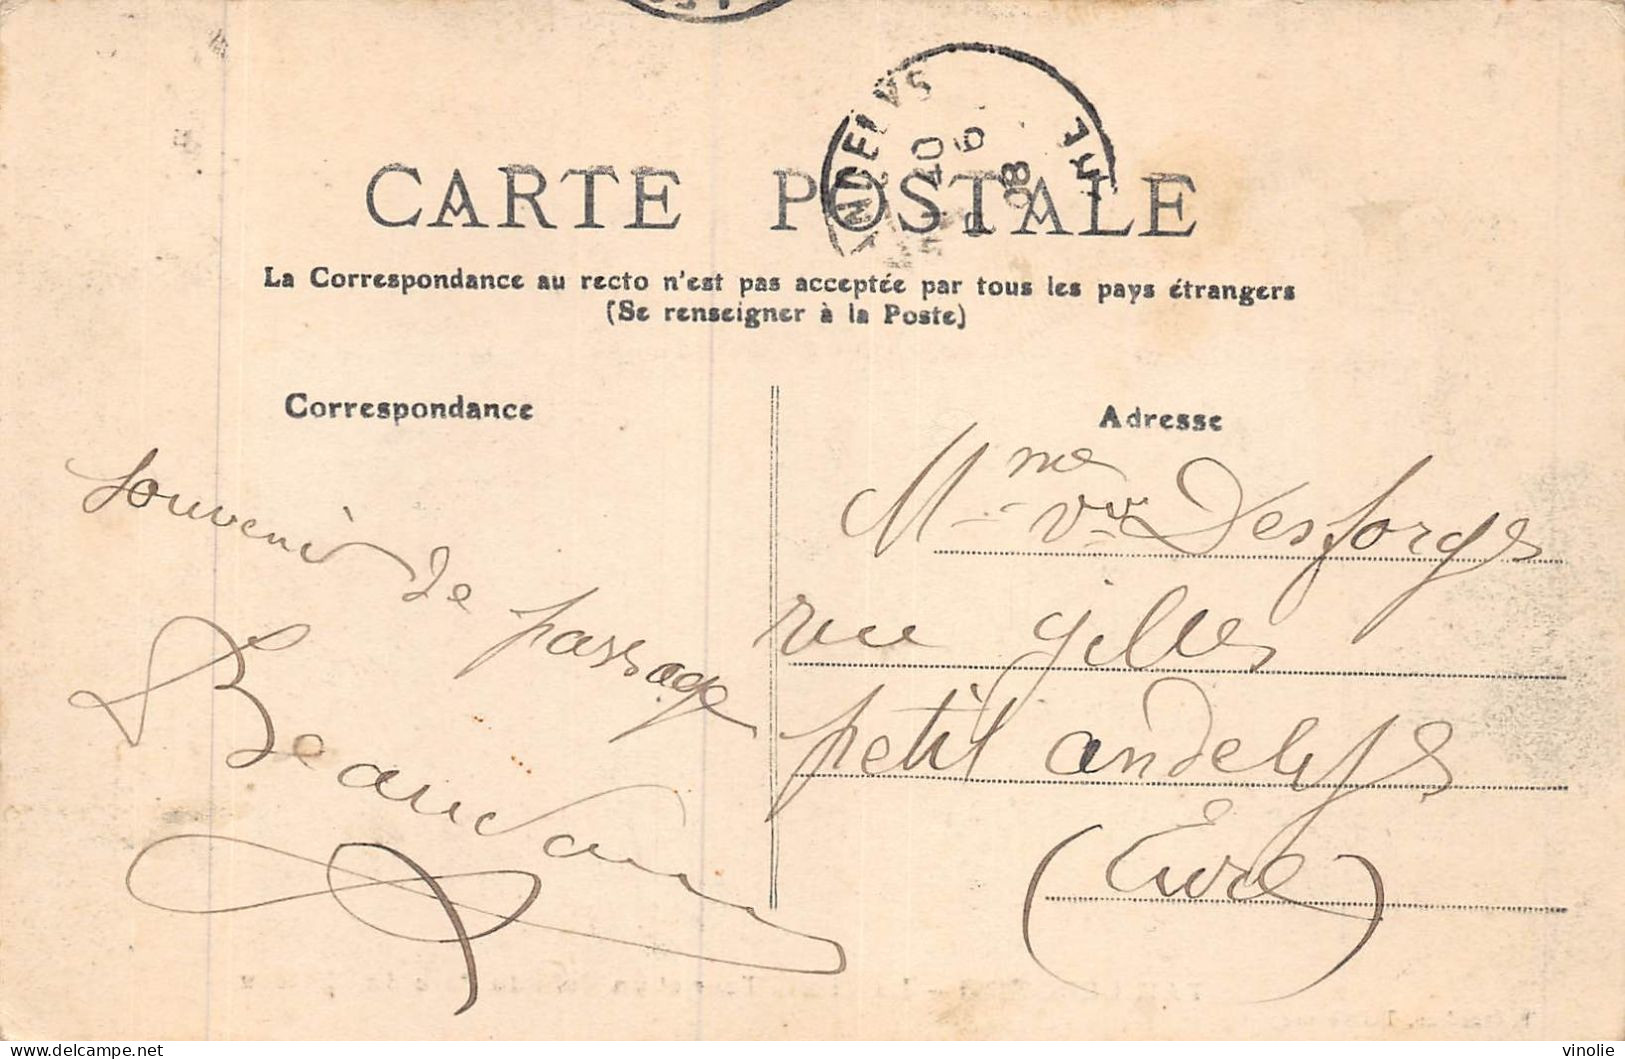 CARTE POSTALE
La Correspondance au recto n'est pas acceptée par tous les pays étrangers
(Se renseigner à la Poste)
Correspondance
Adresse
souvenir de passage
Mme Vve Desforges
rue gilles
petit andelys
(Eure)
NDELYS
08
vinolie